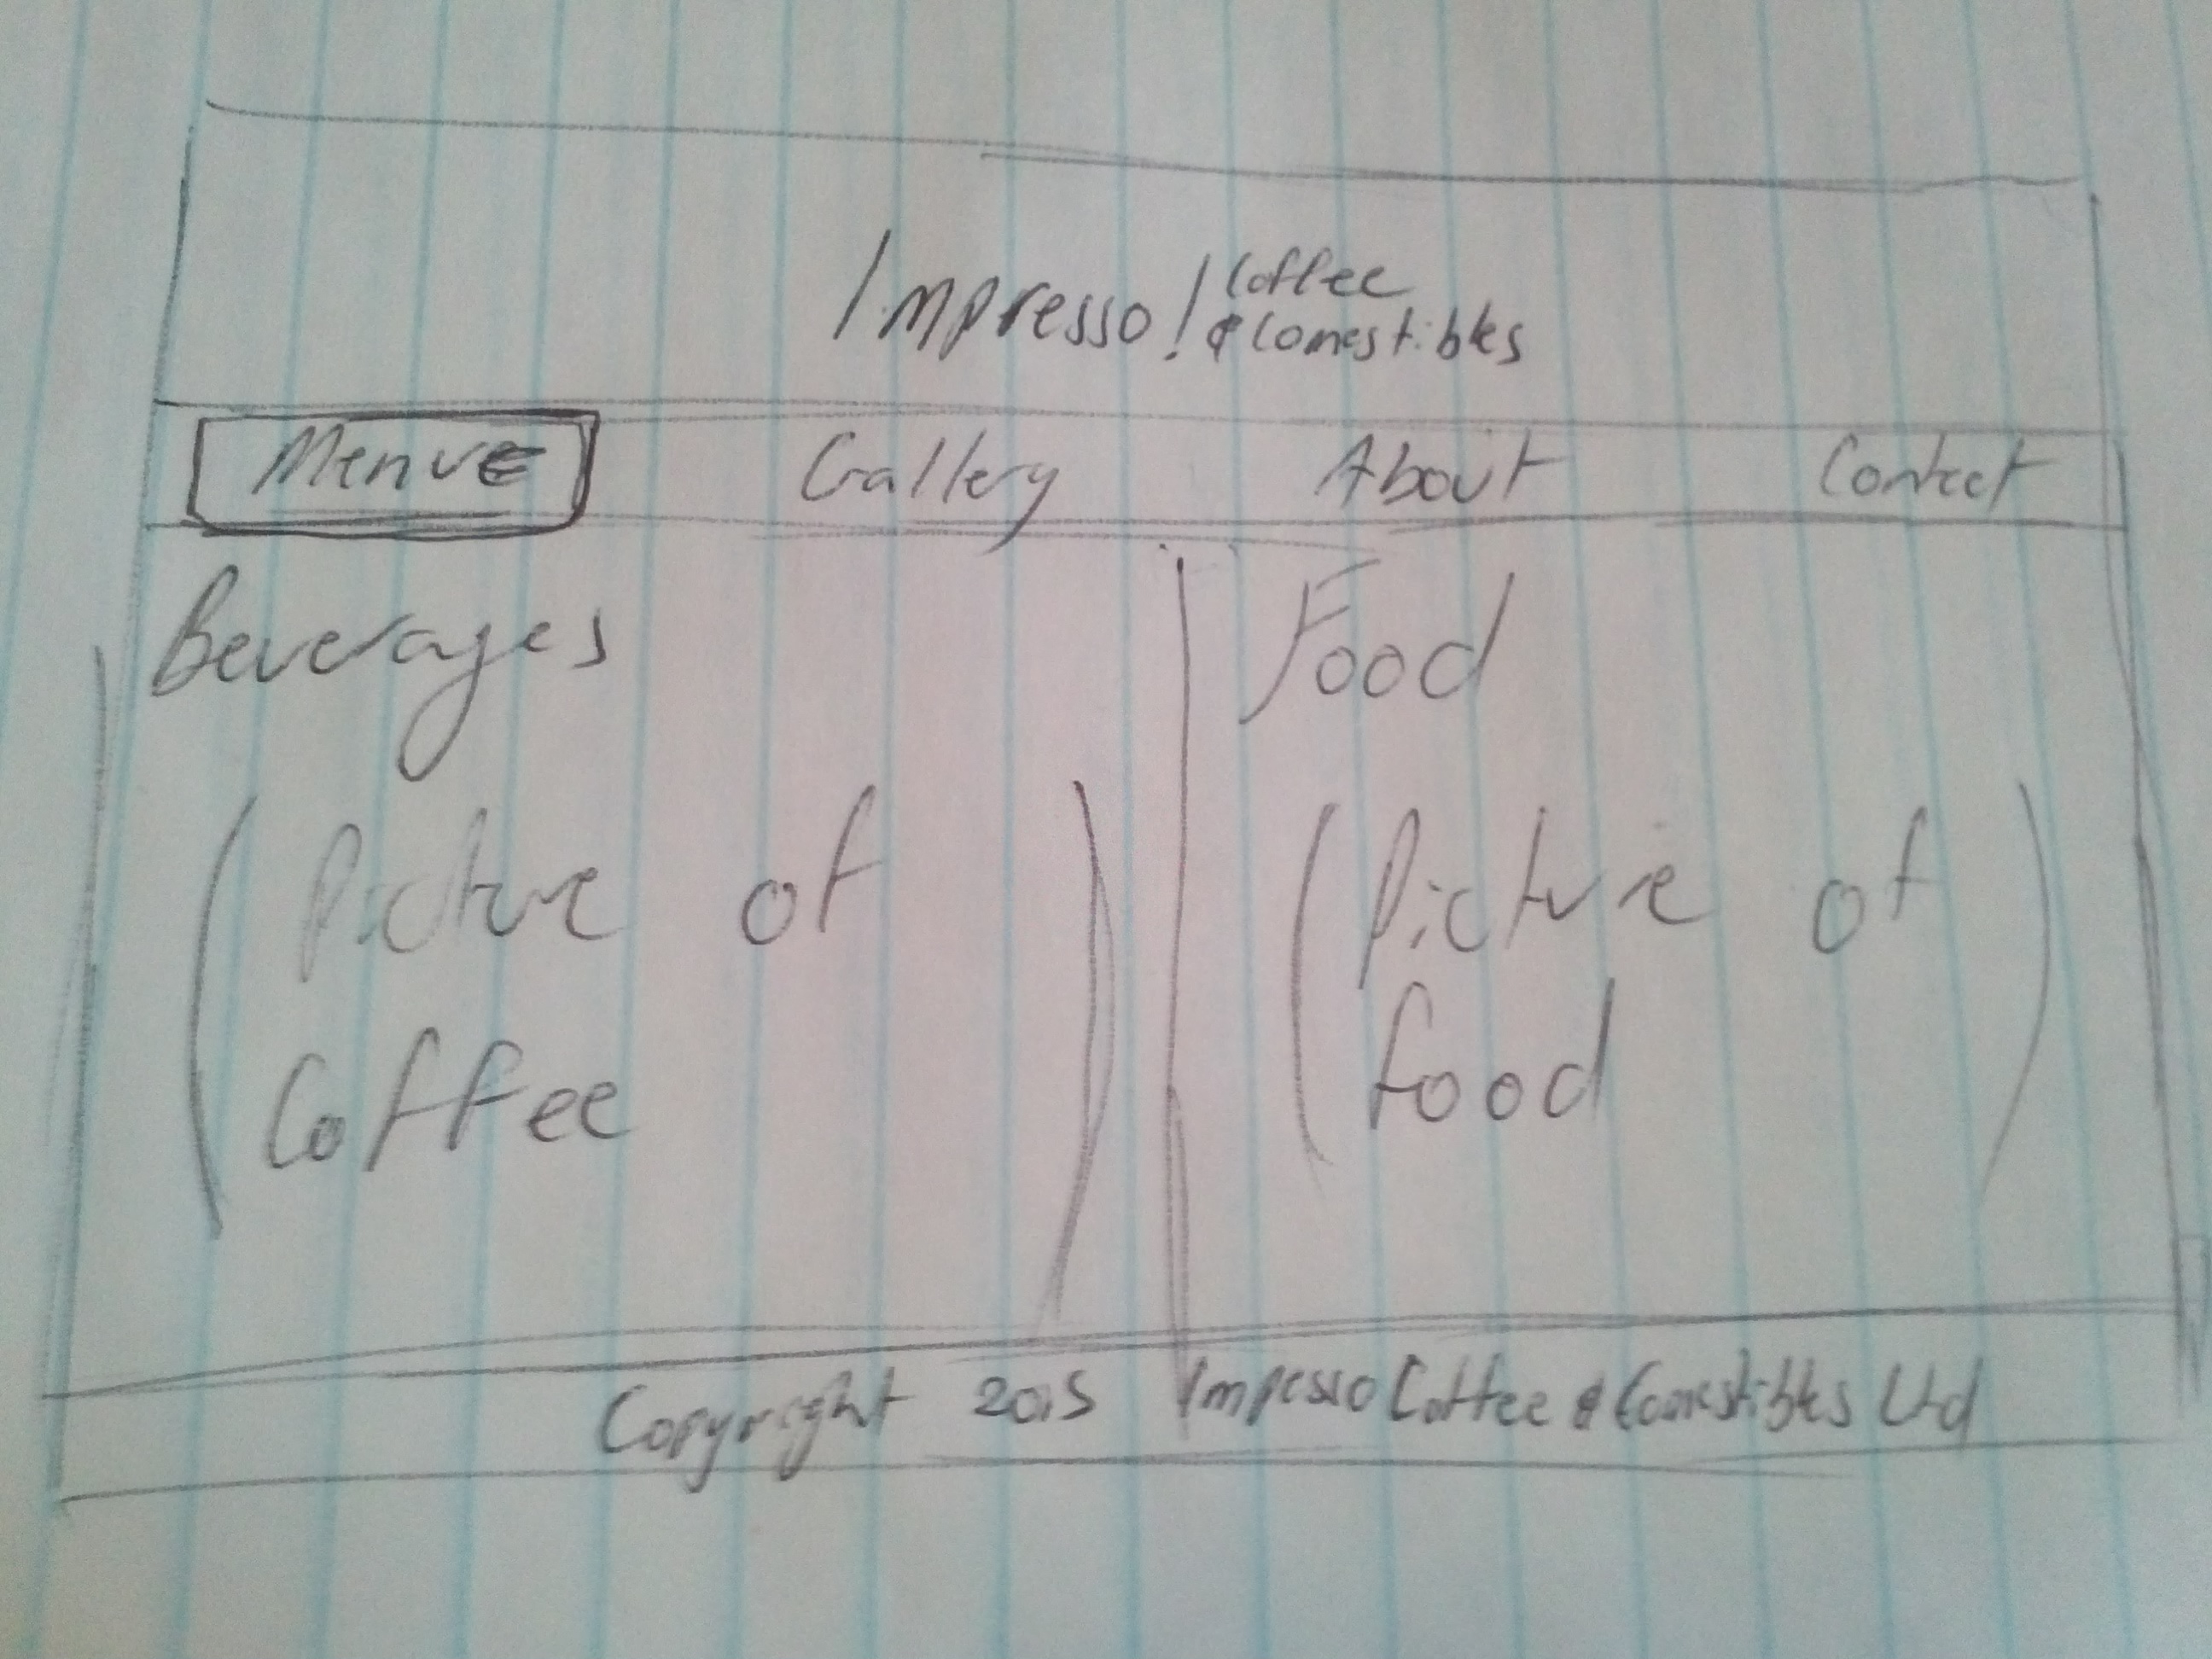 Impresso! Coffee
& Comestibles
Menue Gallery About Contact
Beverages
Food
(Picture of
Coffee)
(Picture of
food)
Copyright 2015 Impesso Coffee & Comestibles Ltd